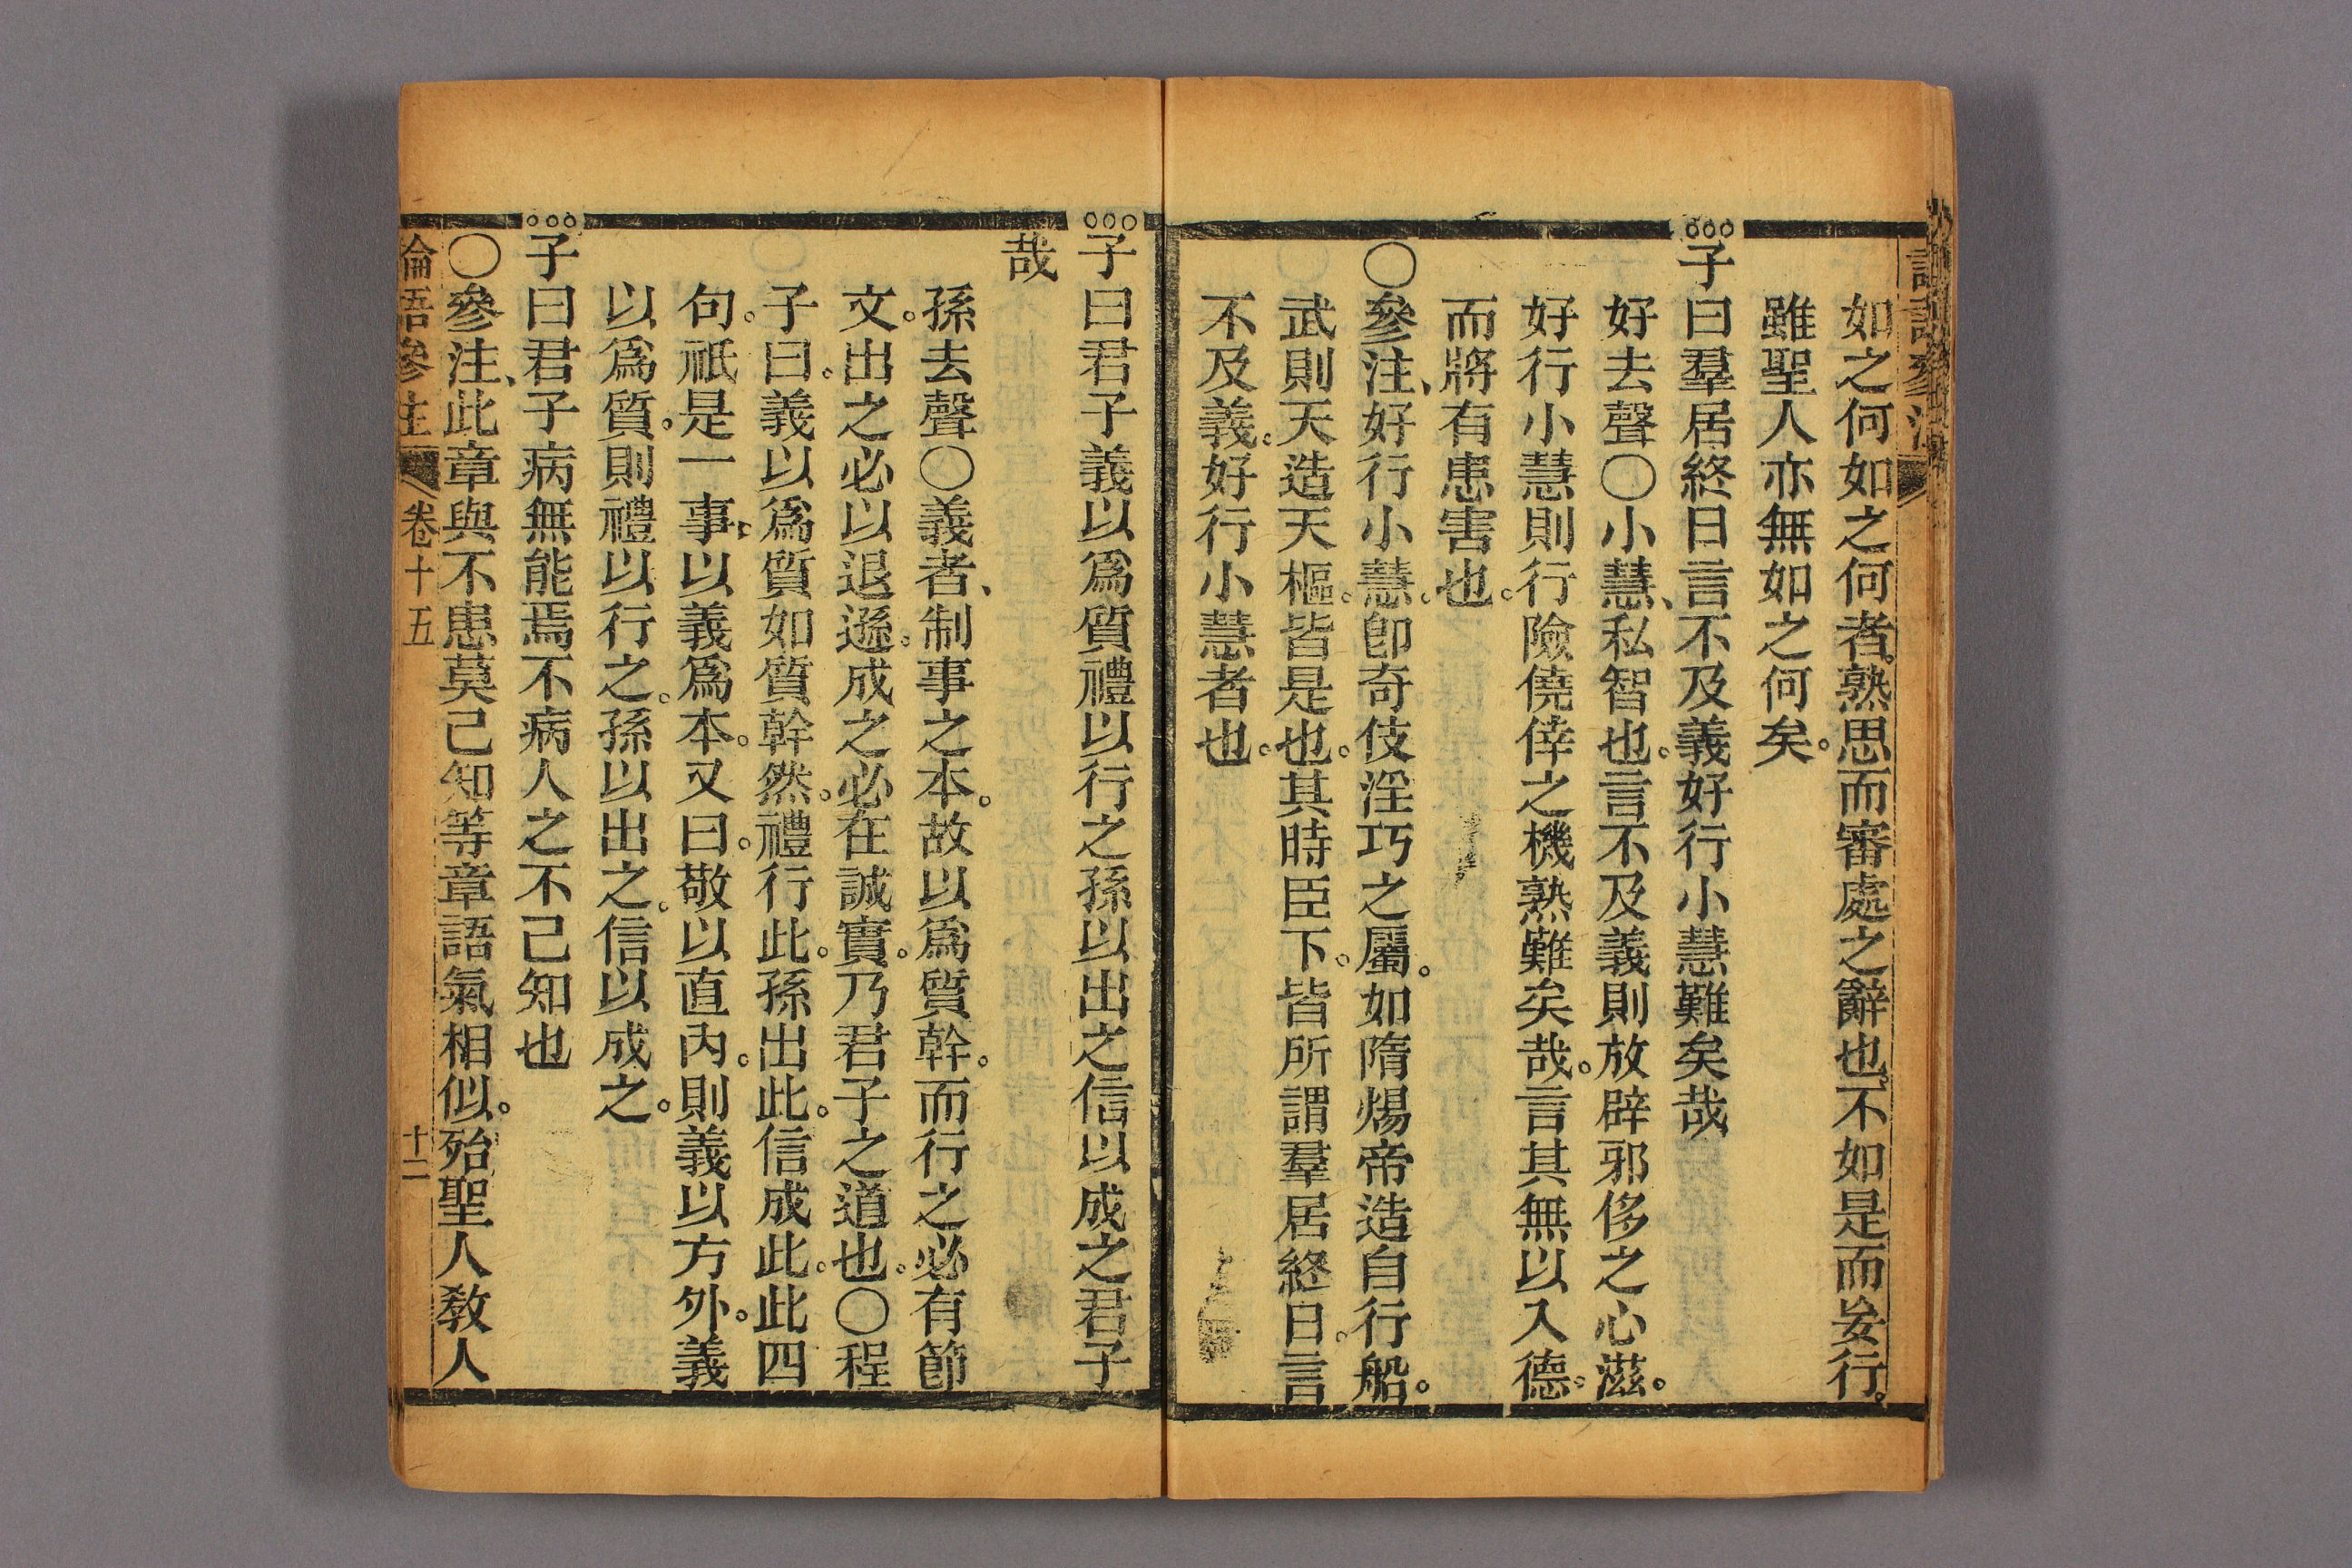 如之何如之何者。熟思而審處之辭也。不如是而妄行。
雖聖人亦無如之何矣。
子曰羣居終日言不及義好行小慧難矣哉
好去聲〇小慧、私智也。言不及義則放辟邪侈之心滋。
好行小慧則行險僥倖之機熟難矣哉。言其無以入德。
而將有患害也。
〇參注、好行小慧。卽奇伎淫巧之屬。如隋煬帝造自行船。
武則天造天樞。皆是也。其時臣下。皆所謂羣居終日。言
不及義。好行小慧者也。
子曰君子義以爲質禮以行之孫以出之信以成之君子
哉
孫去聲〇義者、制事之本。故以爲質幹。而行之必有節
文。出之必以退遜。成之必在誠實。乃君子之道也。〇程
子曰。義以爲質如質幹然。禮行此。孫出此。信成此。此四
句。祇是一事。以義爲本。又曰。敬以直內。則義以方外。義
以爲質。則禮以行之。孫以出之。信以成之。
子曰君子病無能焉不病人之不己知也
〇參注、此章與不患莫己知等章語氣相似。殆聖人教人
論語參注 卷十五 十二